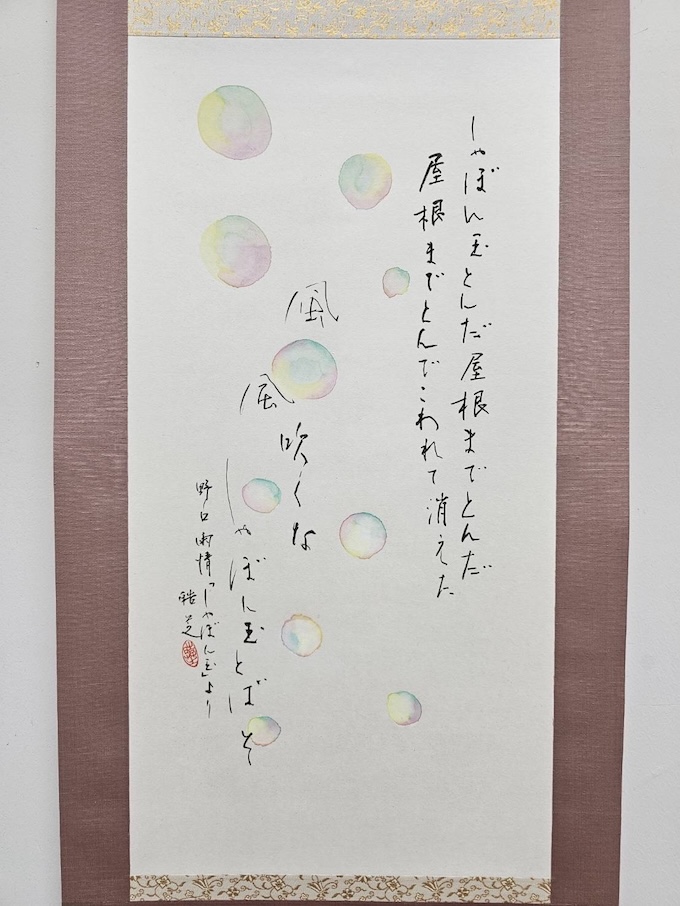 しゃぼん玉とんだ屋根までとんだ
屋根までとんでこわれて消えた
風
風吹くな
しゃぼん玉とばそ
野口雨情「しゃぼん玉」より